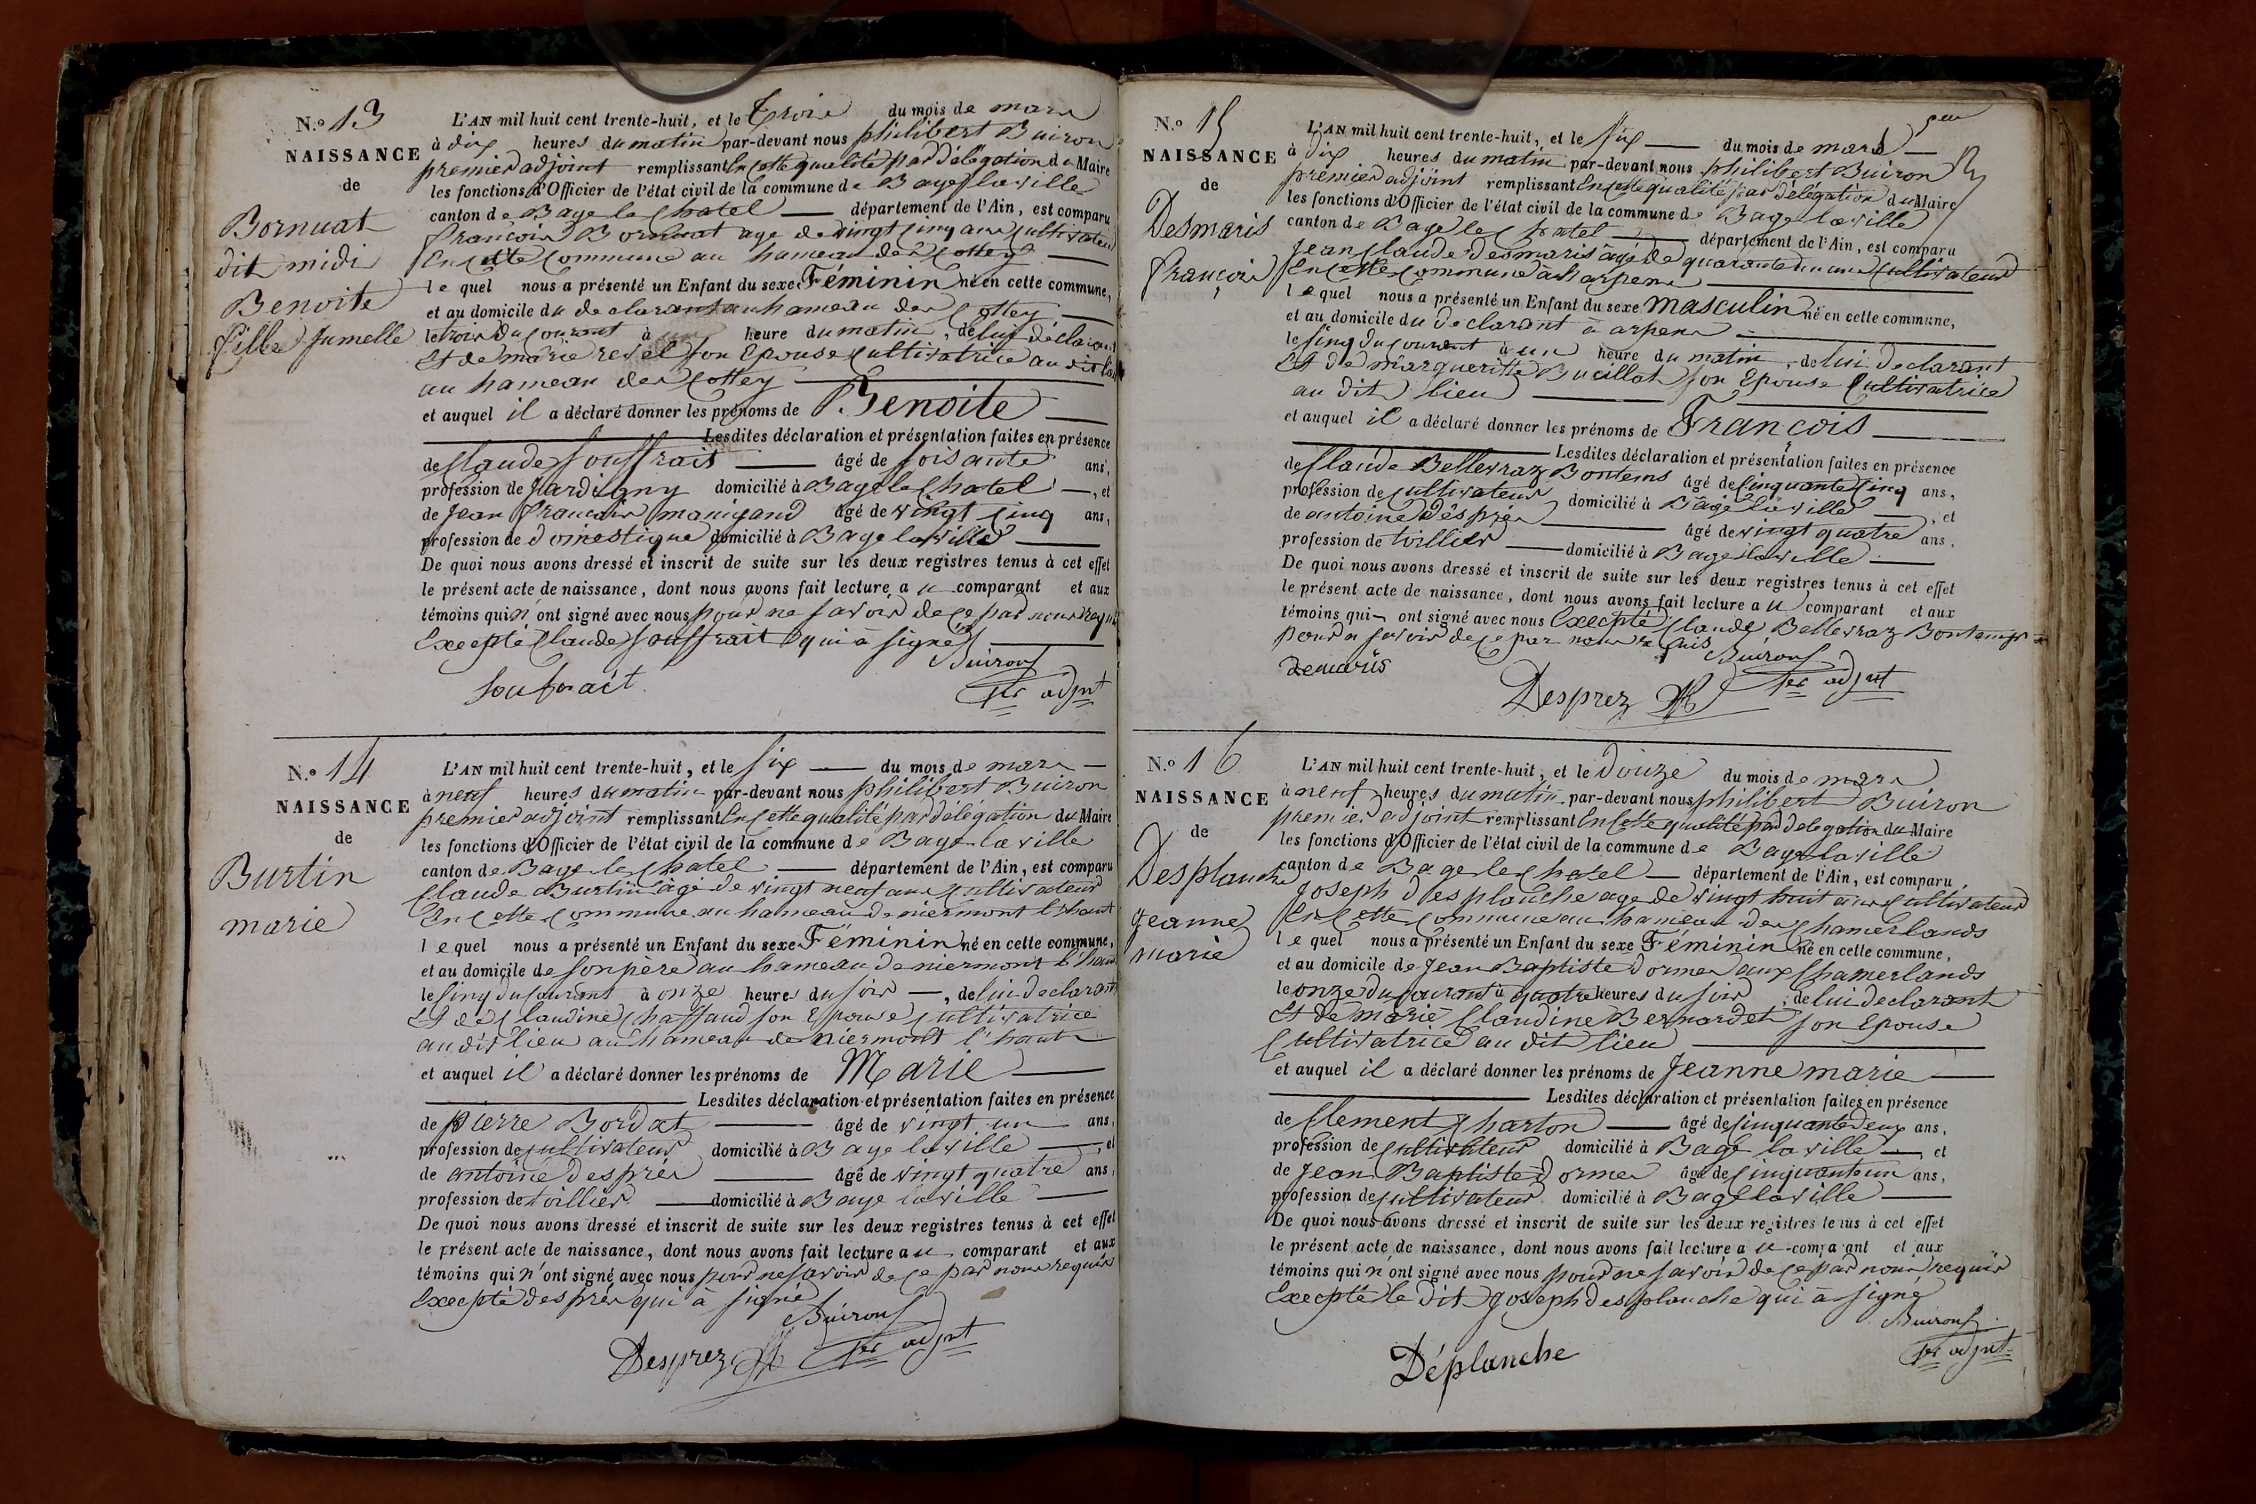 N.º 13
NAISSANCE
de
Bornuat
dit midi
Benoite
fille Jumelle
L'AN mil huit cent trente-huit, et le trois du mois de mars
à dix heures du matin par-devant nous philibert Buiron
premier adjoint remplissant en cette qualité par délégation du Maire
les fonctions d'Officier de l'état civil de la commune de Bagé la ville
canton de Bage le Chatel département de l'Ain, est comparu
françois Bornuat age de vingt cinq ans cultivateur
En cette commune au hameau des cottey
lequel nous a présenté un Enfant du sexe Féminin né en cette commune,
et au domicile du declarant au hameau des cottey
le trois du courant à un heure du matin, de lui déclarant
Et de marie revel son Epouse cultivatrice au dit lieu
au hameau des cottey
et auquel il a déclaré donner les prénoms de Benoite
Lesdites déclaration et présentation faites en présence
de Claude Souffrait âgé de soisante ans,
profession de domicilié à Bage le Chatel, et
de Jean francois manigand âgé de vingt cinq ans,
profession de domestique domicilié à Bage la ville
De quoi nous avons dressé et inscrit de suite sur les deux registres tenus à cet effet
le présent acte de naissance, dont nous avons fait lecture au comparant et aux
témoins qui n'ont signé avec nous pour ne savoir de ce par nous requis
Excepté Claude Souffrait qui à signé
Buiron
Soufrait 1er adjnt
N.º 14
NAISSANCE
de
Burtin
marie
L'AN mil huit cent trente-huit, et le six du mois de mars
à neuf heures du matin par-devant nous philibert Buiron
premier adjoint remplissant En cette qualité par délégation du Maire
les fonctions d'Officier de l'état civil de la commune de Bage la ville
canton de Bage le Chatel département de l'Ain, est comparu
Claude Burtin âgé de vingt neuf ans cultivateur
En cette commune au hameau de niermont l'haut
lequel nous a présenté un Enfant du sexe Féminin né en cette commune,
et au domicile de son père au hameau de niermont l'haut
le cinq du courant à onze heures du soir, de lui declarant
Et de Claudine Chaffaud son Epouse cultivatrice
au dit lieu au hameau de niermont l'haut
et auquel il a déclaré donner les prénoms de Marie
Lesdites déclaration et présentation faites en présence
de pierre Bordat âgé de vingt un ans,
profession de cultivateur domicilié à Bage la ville, et
de antoine desprès âgé de vingt quatre ans,
profession de toillier domicilié à Bage la ville
De quoi nous avons dressé et inscrit de suite sur les deux registres tenus à cet effet
le présent acte de naissance, dont nous avons fait lecture au comparant et aux
témoins qui n'ont signé avec nous pour ne savoir de ce par nous requis
Excepté desprès qui à signé
Buiron
Desprez 1er adjnt
N.º 15
NAISSANCE
de
Desmaris
françois
L'AN mil huit cent trente-huit, et le six du mois de mars
à Dix heures du matin par-devant nous philibert Buiron
premier adjoint remplissant En cette qualité par délégation du Maire
les fonctions d'Officier de l'état civil de la commune de Bage la ville
canton de Bage le Chatel département de l'Ain, est comparu
Jean Claude desmaris âgé de quarante un ans cultivateur
En cette commune à arpens
lequel nous a présenté un Enfant du sexe masculin né en cette commune,
et au domicile du declarant à arpens
le cinq du courant à un heure du matin, de lui declarant
Et de margueritte Bucillat son Epouse cultivatrice
au dit lieu
et auquel il a déclaré donner les prénoms de François
Lesdites déclaration et présentation faites en présence
de Claude Bellevraz Bontems âgé de cinquante cinq ans,
profession de cultivateur domicilié à Bagé la ville, et
de antoine desprès âgé de vingt quatre ans,
profession de toillier domicilié à Bage la ville
De quoi nous avons dressé et inscrit de suite sur les deux registres tenus à cet effet
le présent acte de naissance, dont nous avons fait lecture au comparant et aux
témoins qui ont signé avec nous Excepté Claude Bellevraz Bontemps
pour n savoir de ce par nous requis
Buiron
Demaris Desprez 1er adjnt
N.º 16
NAISSANCE
de
Desplanche
jeanne
marie
L'AN mil huit cent trente-huit, et le Douze du mois de mars
à neuf heures du matin par-devant nous philibert Buiron
premier adjoint remplissant En cette qualité par délégation du Maire
les fonctions d'Officier de l'état civil de la commune de Bage la ville
canton de Bage le Chatel département de l'Ain, est comparu
Joseph desplanche age de vingt huit ans cultivateur
En cette commune au hameau des chamerlands
lequel nous a présenté un Enfant du sexe Féminin né en cette commune,
et au domicile de Jean Baptiste dormes aux Chamerlands
le onze du courant à quatre heures du soir, de lui declarant
Et de marie Claudine Bernardet son Epouse
Cultivatrice au dit lieu
et auquel il a déclaré donner les prénoms de Jeanne marie
Lesdites déclaration et présentation faites en présence
de Clement Charton âgé de cinquante deux ans,
profession de cultivateur domicilié à Bage la ville, et
de Jean Baptiste dormes âgé de cinquante un ans,
profession de cultivateur domicilié à Bagé la ville
De quoi nous avons dressé et inscrit de suite sur les deux registres tenus à cet effet
le présent acte de naissance, dont nous avons fait lecture au comparant et aux
témoins qui n'ont signé avec nous pour ne savoir de ce par nous requis
Excepté le dit joseph desplanche qui à signé
Buiron
Déplanche 1er adjnt